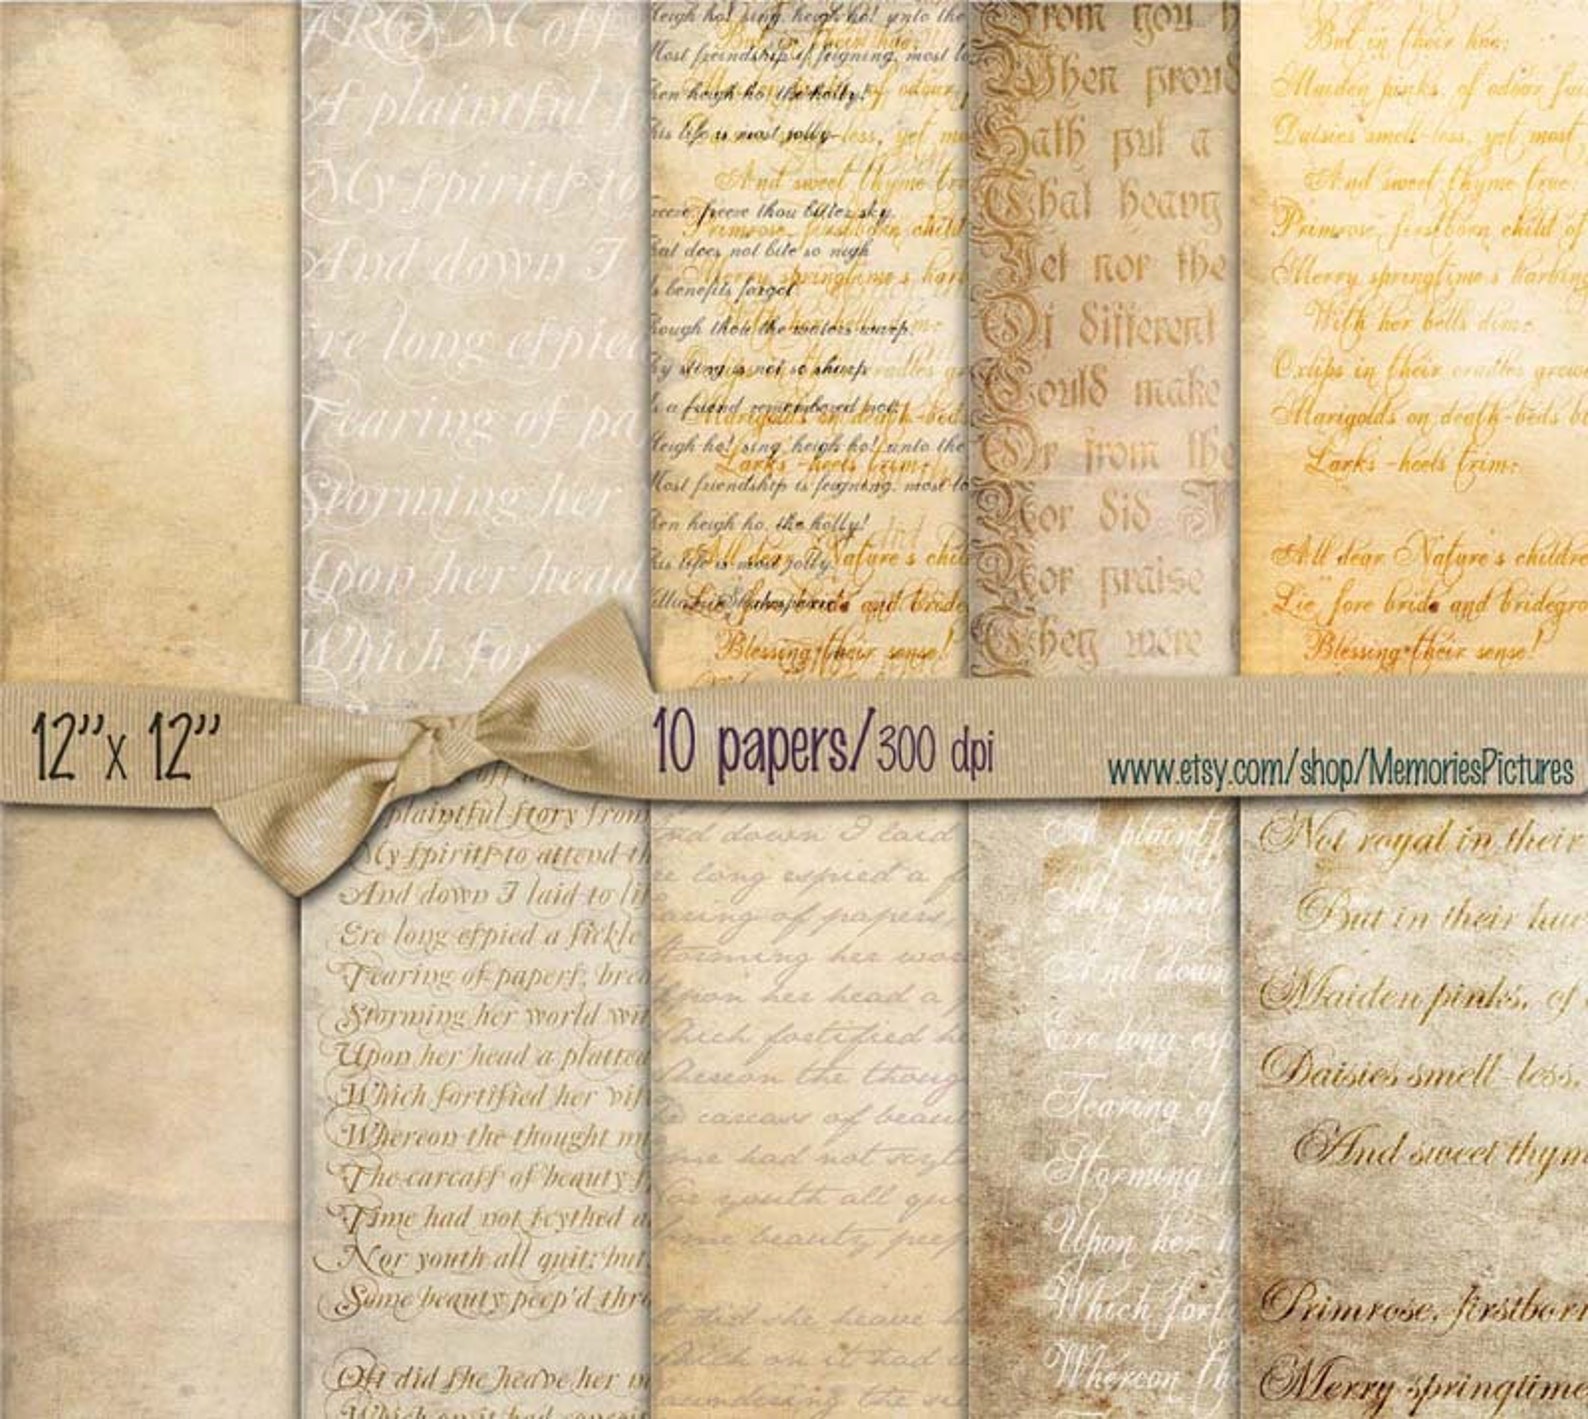 FROM off
A plaintful
My spirits to
And down I
Ere long espied
Tearing of pa
Storming her
Upon her head
Which for
Heigh ho! sing, heigh ho! unto the
Most friendship is feigning, most lo
hen heigh ho, the holly!
his life is most jolly
Freeze, freeze thou bitter sky,
hat does not bite so nigh
s benefits forgot
hough thou the waters warp,
hy sting is not so sharp
s a friend remembered not
Heigh ho! sing, heigh ho! unto the
Most friendship is feigning, most lo
hen heigh ho, the holly!
his life is most jolly.
And sweet thyme tru
Primrose, firstborn child
Merry springtime's harb
Larks-heels trim;
All dear Nature's child
Blessing their sense!
From you h
When proud
Hath put a
That heavy
Yet nor the
Of different
Could make
Or from the
Nor did I
Nor praise
They were
But in their hue;
Maiden pinks, of odour fai
Daisies smell-less, yet most
And sweet thyme true;
Primrose, firstborn child of
Merry springtime's harbing
With her bells dim;
Oxlips in their cradles grow
Marigolds on death-beds bl
Larks-heels trim;
All dear Nature's childre
Lie fore bride and bridegro
Blessing their sense!
12”x 12”
10 papers/300 dpi
www.etsy.com/shop/MemoriesPictures
plaintful story from
My spirits to attend th
And down I laid to li
Ere long espied a fickle
Tearing of papers, brea
Storming her world wit
Upon her head a platted
Which fortified her vis
Whereon the thought m
The carcass of beauty
Time had not scythed a
Nor youth all quit; but
Some beauty peep'd thr
Oft did she heave her
And down I laid
re long espied a f
earing of papers,
torming her wor
Upon her head a
hich fortified he
hereon the thoug
he carcass of beaut
me had not scyth
Nor youth all qui
ome beauty peep
A plaintf
My spirit
And down
Ere long esp
Tearing of
Storming
Upon her h
Which forti
Whereon th
Not royal in their
But in their hue
Maiden pinks, of
Daisies smell-less,
And sweet thym
Primrose, firstborn
Merry springtime